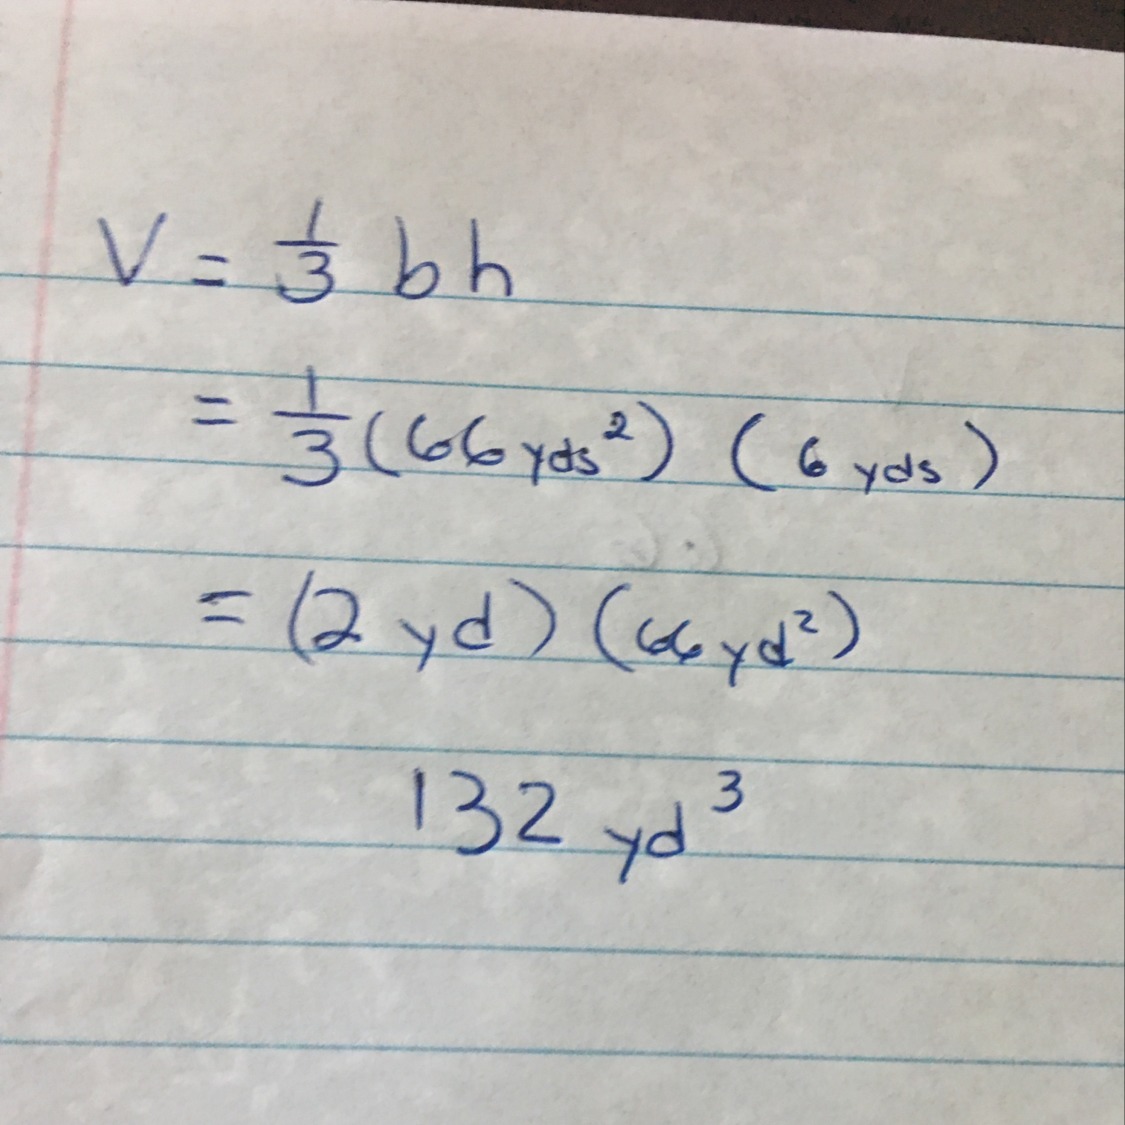 V = 1/3 b h
= 1/3 (66 yds²) (6 yds)
= (2 yd) (66 yd²)
132 yd³